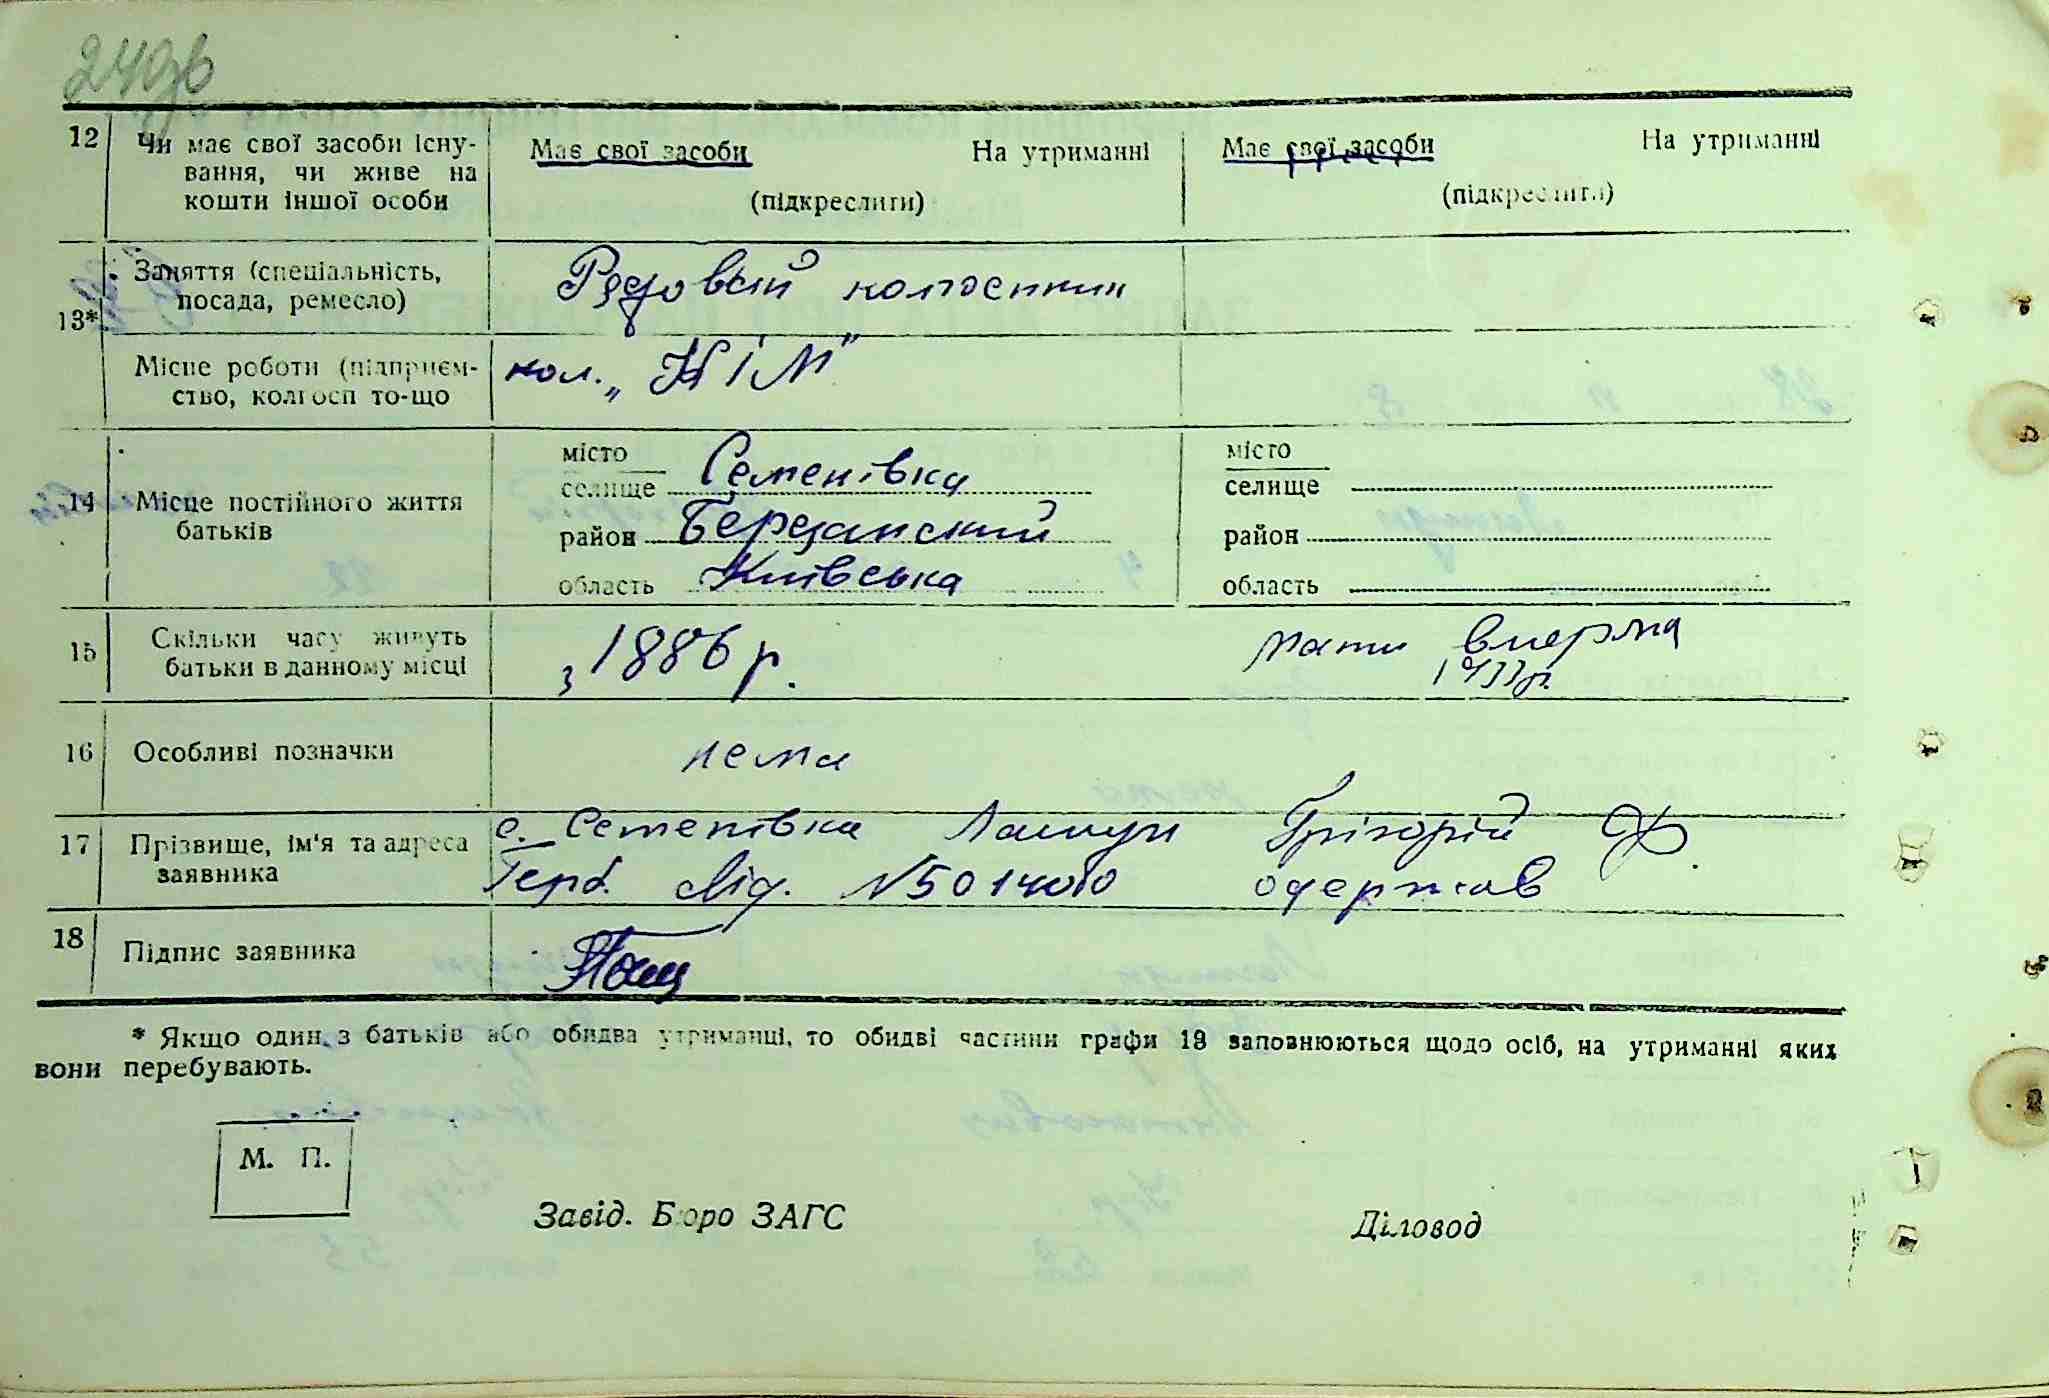 240зв
12 Чи має свої засоби існу-
вання, чи живе на
кошти іншої особи
Має свої засоби На утриманні
(підкреслити)
Має свої засоби На утриманні
(підкреслити)
13*
Заняття (спеціальність,
посада, ремесло)
Рядовый колгоспник
Місце роботи (підприєм-
ство, колгосп то-що
кол. „КІМ"
14 Місце постійного життя
батьків
місто
селище Семенівка
район Березанский
область Київська
місто
селище
район
область
15 Скільки часу живуть
батьки в данному місці
з 1886 р.
мати вмерла
1933р.
16 Особливі позначки
нема
17 Прізвище, ім'я та адреса
заявника
с. Семенівка Лашун Грігорій Ф.
Герб. свід. №5014010 одержав
18 Підпис заявника
* Якщо один з батьків або обидва утриманці, то обидві частини графи 13 заповнюються щодо осіб, на утриманні яких
вони перебувають.
М. П.
Завід. Бюро ЗАГС
Діловод